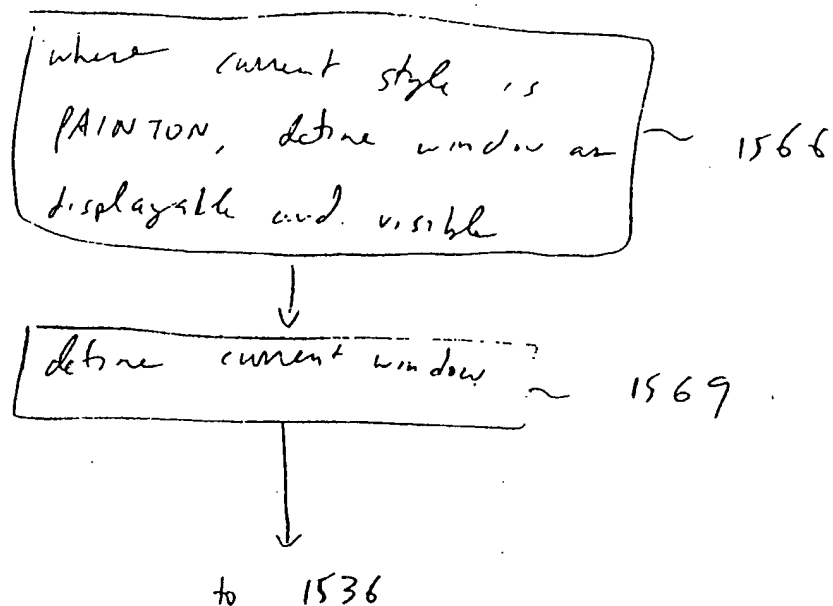 where current style is
PAINTON, define window as
displayable and visible
1566
define current window
1569
to 1536